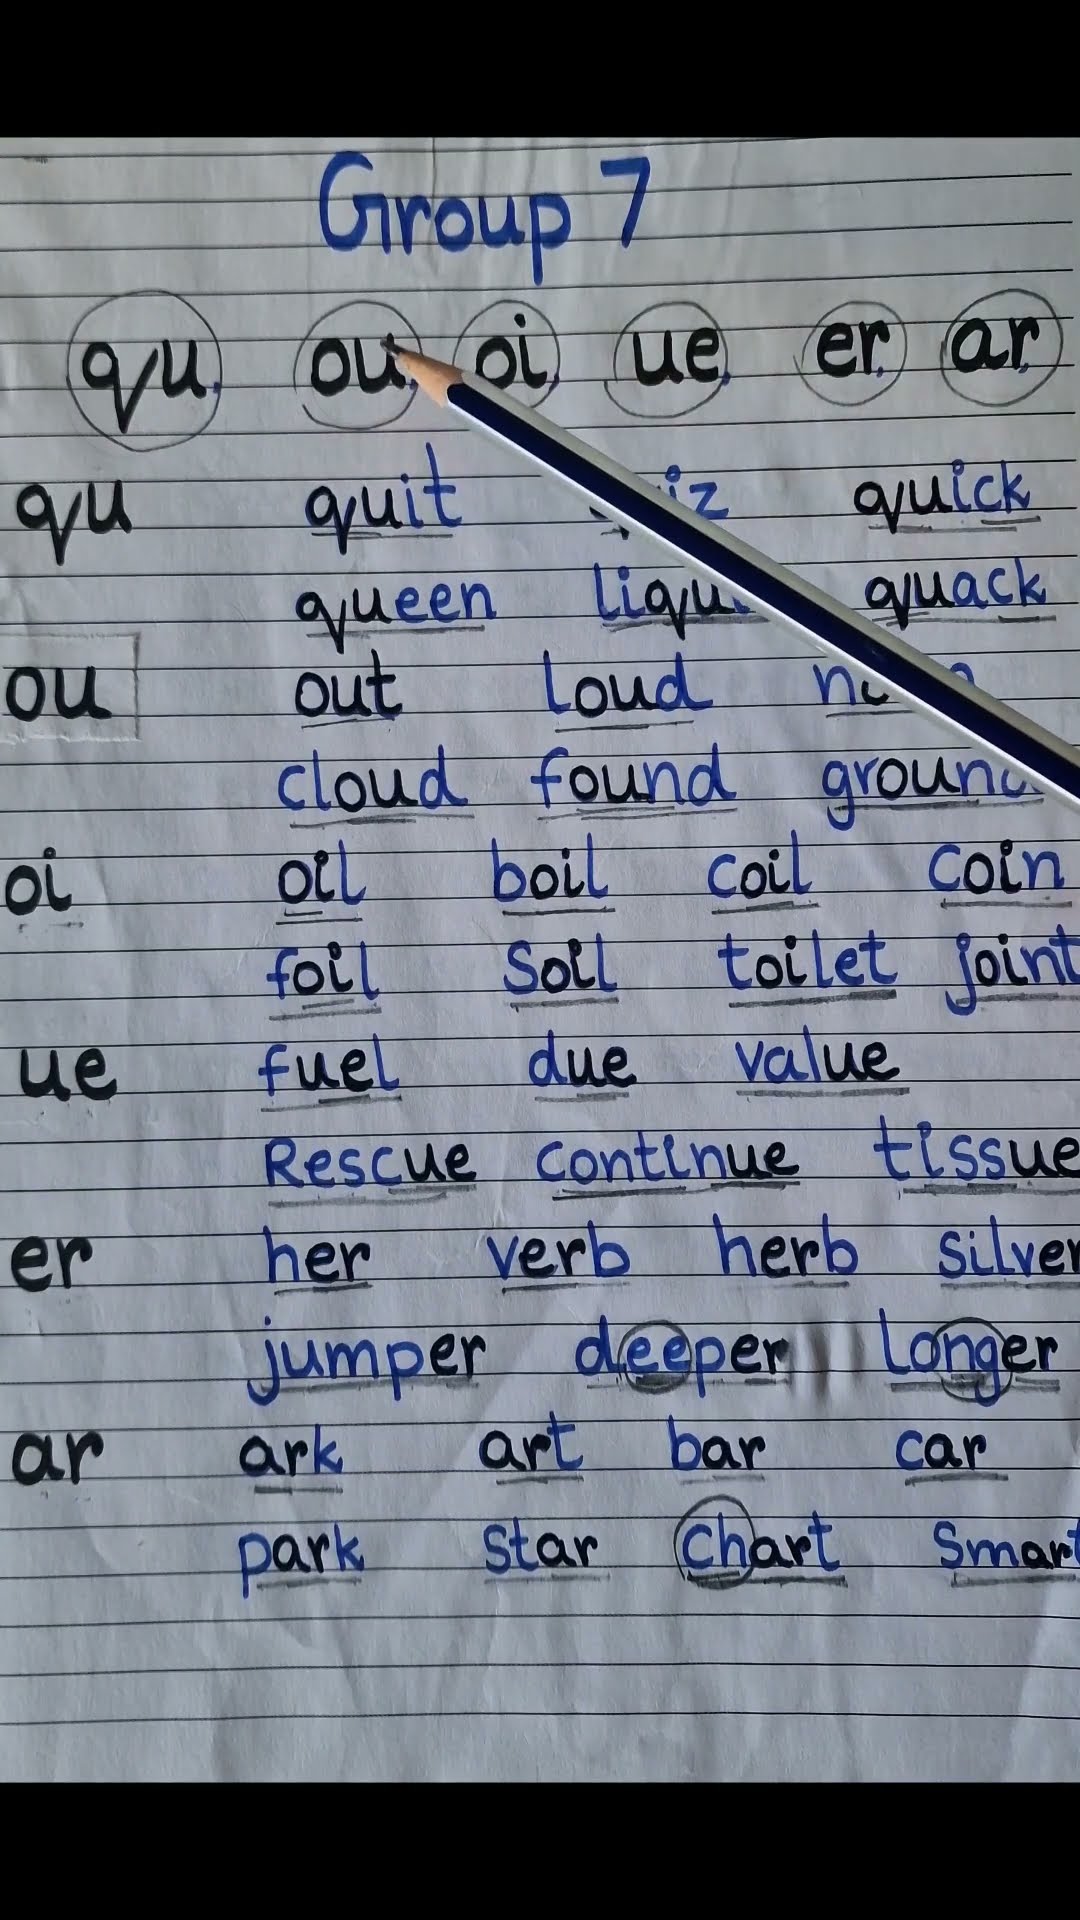 Group 7
qu, ou, oi, ue, er, ar,
qu quit quick
queen quack
ou out loud
cloud found ground
oi oil boil coil coin
foil soil toilet joint
ue fuel due value
Rescue continue tissue
er her verb herb silver
jumper deeper longer
ar ark art bar car
park star chart Smart